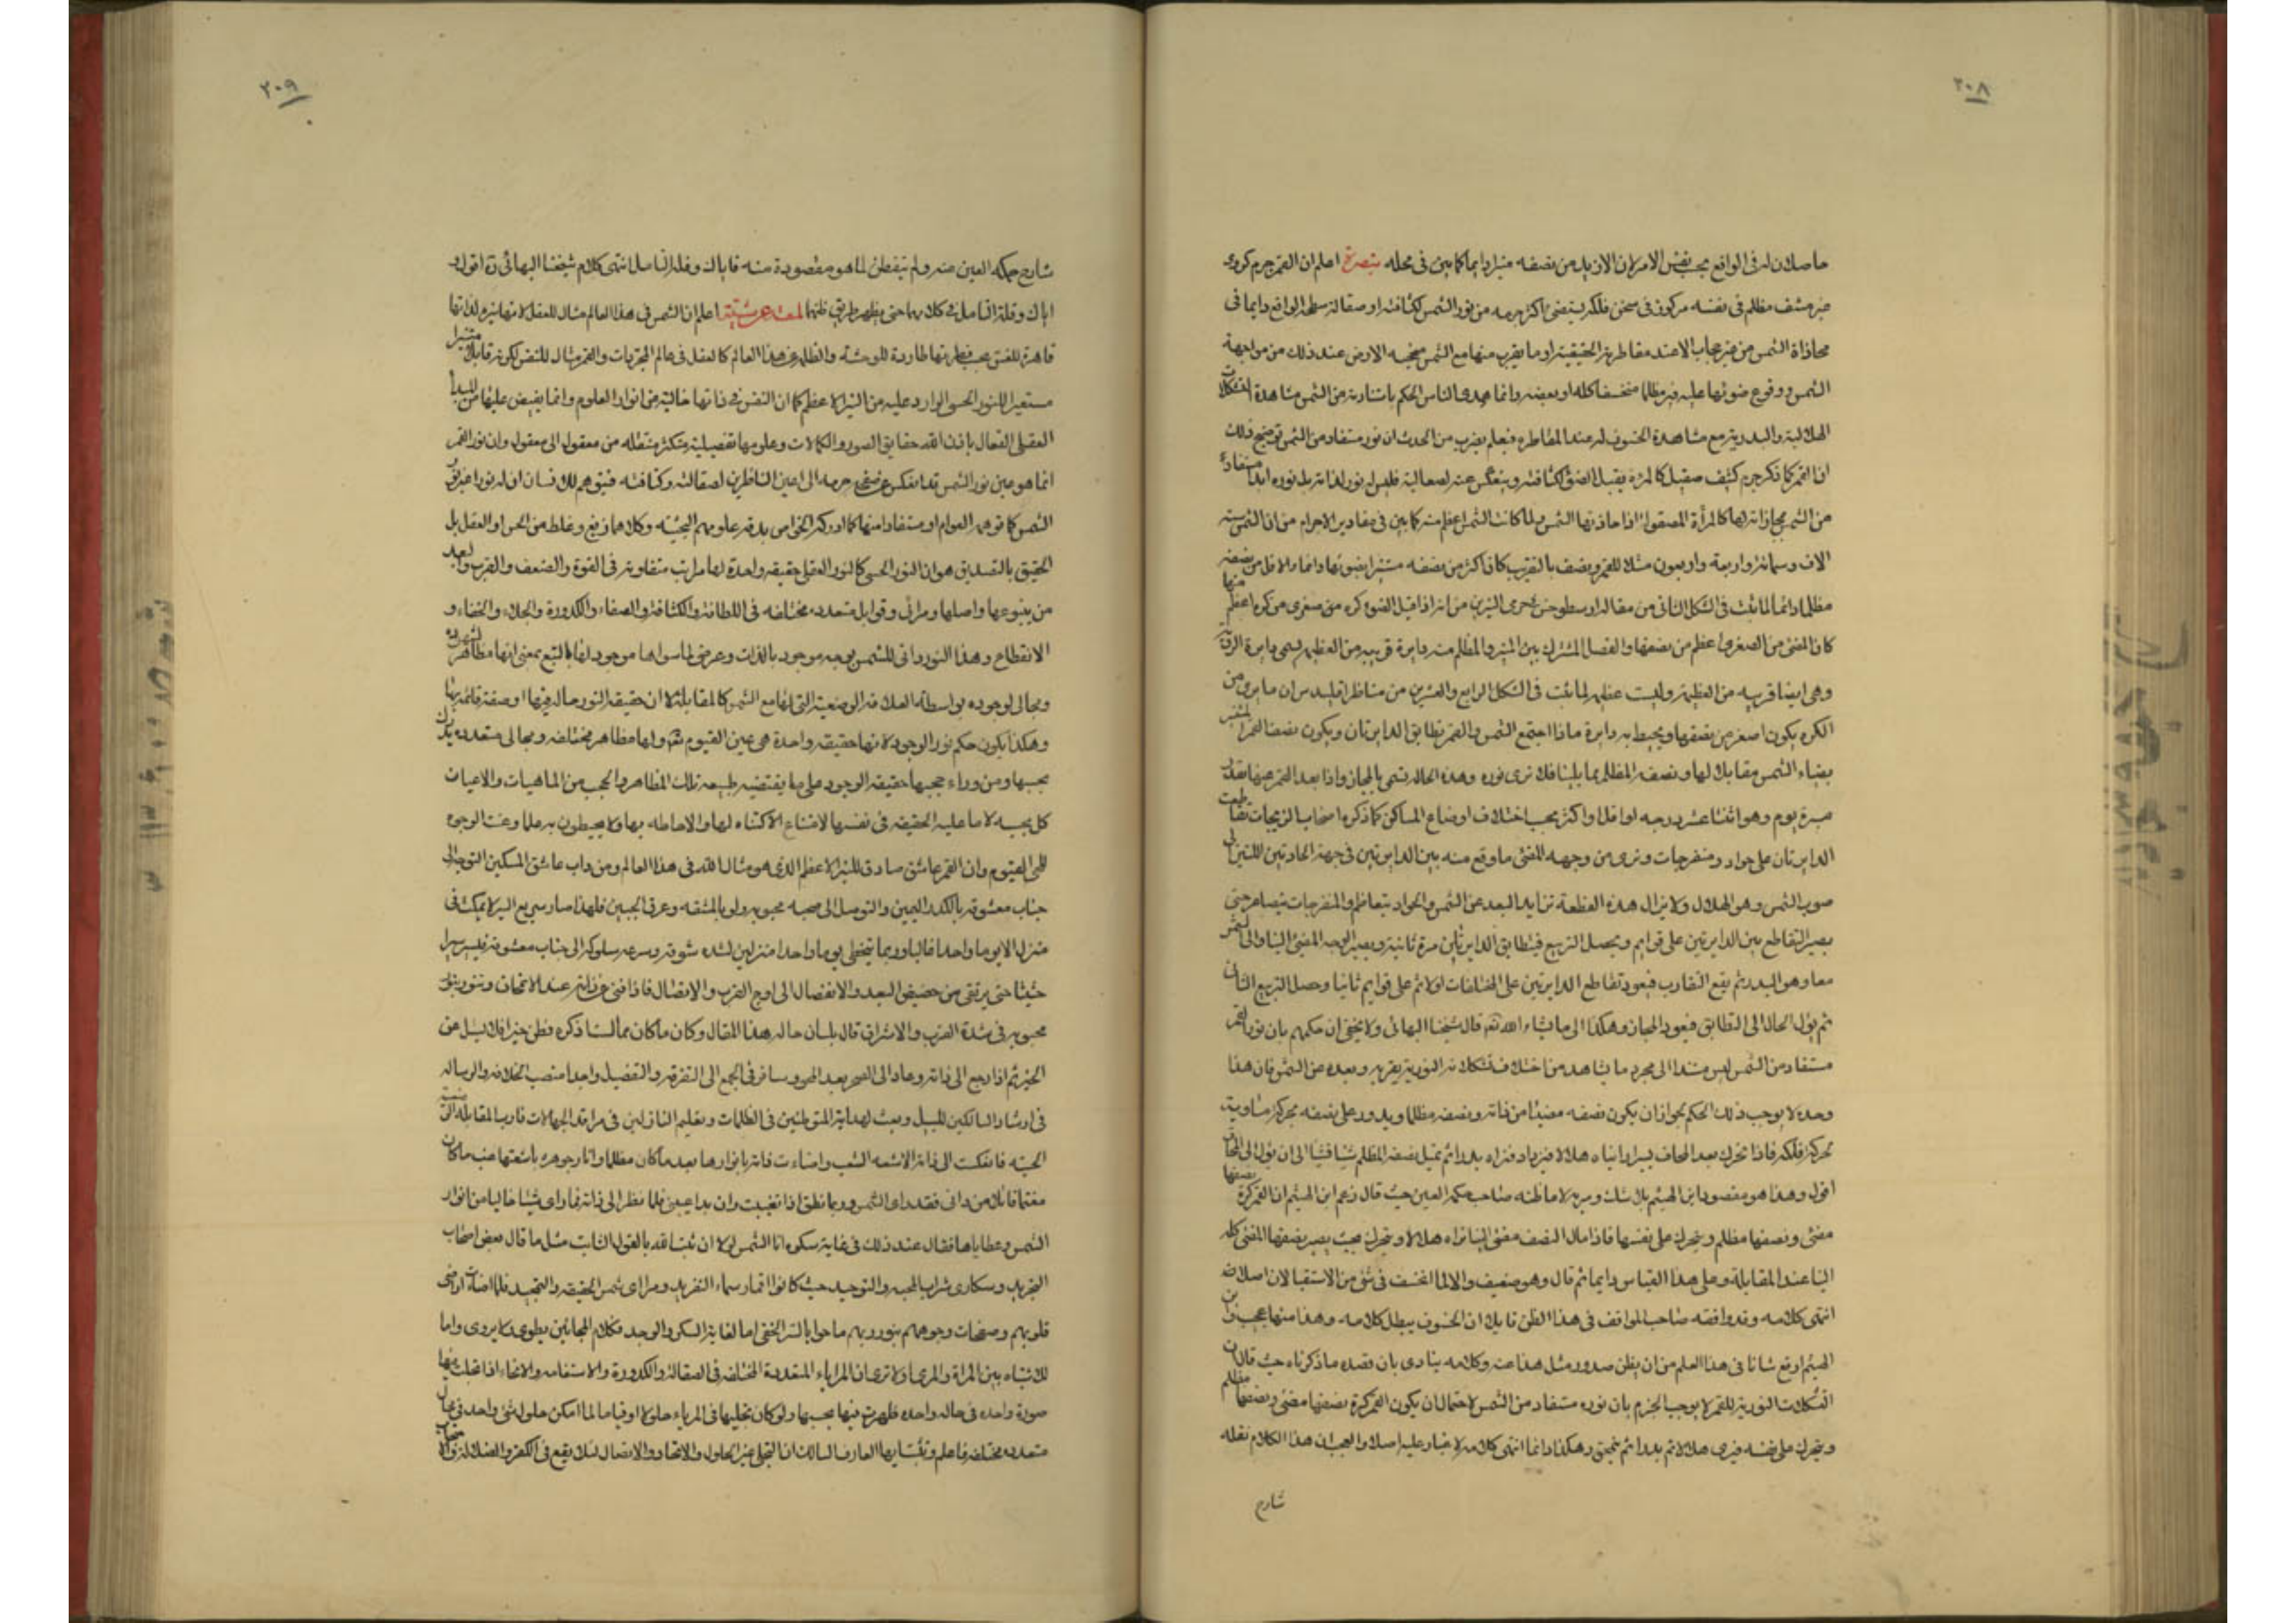 ٢٠٨
حاصلا له في الواقع بحسب نفس الامر لان الازيد من نصفه منير دايما كما بين في محله تبصرة اعلم ان القمر جرم كروى
غير مشف مظلم في نفسه مركوز في سخن فلكه يستضئ اكثر جرمه من نور الشمس لكثافته او صقالة سطحه الواقع دايما في
محاذاة الشمس من غير حجاب الا عند مقاطرته الحقيقية او ما يقرب منها مع الشمس فيحجبه الارض عند ذلك من مواجهة
الشمس ووقوع ضوئها عليه فيرى مظلما منخسفا كله او بعضه وانما هدى الناس الحكم باستنارته من الشمس مشاهدة التشكلات
الهلالية والبدرية مع مشاهدة الخسوف له عند المقاطرة فيعلم بضرب من الحدس ان نوره مستفاد من الشمس توضيح ذلك
ان القمر كما ذكر جرم كثيف صقيل كالمرآة يقبل الضوء لكثافته وينعكس عنه لصقالته فليس له نور لذاته بل نوره ابدا مستفاد
من الشمس بمحاذاته لها كالمرآة المصقولة اذا حاذتها الشمس ولما كانت الشمس اعظم منه كما بين في مقادير الاجرام من ان الشمس ستة
الاف وستمائة واربعة واربعون مثلا للقمر ونصف بالتقريب كان اكثر من نصفه مستنيرا بضوئها دائما والاقل من نصفه
مظلما دائما لما ثبت في الشكل الثاني من مقالة ارسطرخس في جرمى النيرين من انه اذا قبل الضوء كرة صغرى من كرة اعظم منها
كان المضئ من الصغرى اعظم من نصفها والفصل المشترك بين المنير والمظلم منه دايرة قريبة من العظيمة تسمى دايرة الرؤية
وهى ايضا قريبة من العظيمة وليست عظيمة لما ثبت في الشكل الرابع والعشرين من مناظر اقليدس ان ما يرى من
الكرة يكون اصغر من نصفها ويحيط به دايرة فاذا اجتمع الشمس والقمر تطابق الدايرتان ويكون نصف القمر المستنير
بضياء الشمس مقابلا لها ونصفه المظلم مما يلينا فلا نرى نوره وهذه الحالة تسمى بالمحاق واذا بعد القمر عنها بقدر
مسيرة يوم وهو اثنتا عشرة درجة او اقل او اكثر بحسب اختلاف اوضاع المساكن كما ذكره اصحاب الزيجات تقاطعت
الدايرتان على حواد ومنفرجات ونرى من وجهه المضئ ما وقع منه بين الدايرتين في جهة الحادتين اللتين الى
صوب الشمس وهو الهلال ولا يزال هذه القطعة تتزايد البعد عن الشمس والحواد يتعاظم والمنفرجات يتصاغر حتى
يصير التقاطع بين الدايرتين على قوايم ويحصل التربيع فيتطابق الدايرتان مرة ثانية ويصير الوجه المضئ الينا والى الشمس
معا وهو البدر ثم يقع التقارب فيعود تقاطع الدايرتين على المختلفات اولا ثم على قوايم ثانيا وحصل التربيع الثاني
ثم يؤل الحال الى التطابق فيعود المحاق وهكذا الى ما يشاء الله تعالى قال شيخنا البهائي ولا يخفى ان حكمهم بان نور القمر
مستفاد من الشمس ليس مستندا الى مجرد ما يشاهد من اختلاف تشكلاته النورية بقربه وبعده عن الشمس فان هذا
وحده لا يوجب ذلك الحكم لجواز ان يكون نصفه مضيئا من ذاته ونصفه مظلما ويدور على نفسه بحركة مساوية
لحركة فلكه فاذا تحرك بعد المحاق يسيرا رايناه هلالا فيزداد فنراه بدرا ثم يميل نصفه المظلم شيئا فشيئا الى ان يؤل الى المحاق
اقول وهذا هو مقصود ابن الهيثم بلا شك ومرية لا ما ظنه صاحب حكمة العين حيث قال زعم ابن الهيثم ان القمر كرة نصفها
مضئ ونصفها مظلم ويتحرك على نفسها فاذا مال النصف مضئ الينا نراه هلالا ويتحرك بحيث يصير نصفها المضئ كله
الينا عند المقابلة وعلى هذا القياس دايما ثم قال وهو ضعيف والا لما انخسف في شئ من الاستقبالات اصلا
انتهى كلامه وقد وافقه صاحب المواقف في هذا الظن قايلا ان الخسوف يبطل كلامه وهذا منهما عجيب وابن
الهيثم ارفع شانا في هذا العلم من ان يظن صدور مثل هذا عنه وكلامه ينادى بان قصده ما ذكرناه حيث قال ان
التشكلات النورية للقمر لا يوجب الجزم بان نوره مستفاد من الشمس لاحتمال ان يكون القمر كرة نصفها مضئ ونصفها مظلم
ويتحرك على نفسه فيرى هلالا ثم بدرا ثم ينمحق وهكذا دائما انتهى كلامه لا غبار عليه اصلا والعجب ان هذا الكلام نقله
شارح
٢٠٩
شارح حكمة العين عنه ولم يتفطن لما هو مقصوده منه فاياك وقلة التامل انتهى كلام شيخنا البهائي ره اقول و
اياك وقلة التامل في كلامهما حتى يظهر طريق ظنهما لمعة عرشية اعلم ان الشمس في هذا العالم مثال للعقل لانها نيرة لذاتها
قاهرة للغسق بحسب فطرتها طاردة للوحشة والظلمة عن هذا العالم كالعقل في عالم المجردات والقمر مثال للنفس لكونه قابلا متنيرا
مستعيرا للنور الحسى الوارد عليه من النير الاعظم كما ان النفس في ذاتها خالية من انوار العلوم وانما يفيض عليها من المبدأ
العقلى الفعال باذن الله حقايق الصور والكمالات وعلومها تفصيلية متكثرة منتقلة من معقول الى معقول وان نور القمر
انما هو عين نور الشمس قد انعكس عن صفحة جرمه الى اعين الناظرين لصقالته وكثافته فيتوهم للانسان ان له نورا غير نور
الشمس كما توهمه العوام او مستفادا منها كما ادركه الخواص بدقة علومهم البحثية وكلاهما زيغ وغلط من الحس او العقل بل
الحقيق بالتصديق هو ان النور الحسى كالنور العقلى حقيقة واحدة لها مراتب متفاوتة في القوة والضعف والقرب والبعد
من ينبوعها واصلها ومرائي وقوابل متعددة مختلفة في اللطافة والكثافة والصفاء والكدورة والجلاء والخفاء و
الانقطاع وهذا النور ذاتى للشمس بوجه موجود بالذات وعرضى لما سواها موجود لها بالتبع بمعنى انها مظاهر لشهوده
ومجالى لوجوده بواسطة العلاقة الوضعية التي لها مع الشمس كالمقابلة لا ان حقيقة النور حالة فيها او صفة قائمة بها
وهكذا يكون حكم نور الوجود لانها حقيقة واحدة هي عين القيوم تعالى ولها مظاهر مختلفة ومجالى متعددة يدرك
بحسبها ومن وراء حجبها حقيقة الوجود على ما يقتضيه طبيعة تلك المظاهر والحجب من الماهيات والاعيان
كل بحسبه لا ما عليه الحقيقة في نفسها لامتناع الاكتناه لها والاحاطة بها ولا يحيطون به علما وعنت الوجوه
للحى القيوم وان القمر عاشق صادق للنير الاعظم الذي هو مثال الله في هذا العالم ومن داب عاشق المسكين التوجه الى
جناب معشوقه بالكد اليمين والتوصل الى صحبة محبوبه ولو بالمشقة وعرق الجبين فلهذا صار سريع السير لا يمكث في
منزل الا يوما واحدا غالبا وربما يتخطى يوما واحدا منزلين لشدة شوقه وسرعة سلوكه الى جناب معشوقه فيسير سيرا
حثيثا حتى يرتقى من حضيض البعد والانفصال الى اوج القرب والاتصال فاذا فنى عن ذاته عند الامتحاق وتنور بنور
محبوبه في شدة القرب والاشراق قال بلسان حاله هذا المقال وكان ما كان مما لست اذكره فظن خيرا فلا تسئل عن
الخبر ثم اذا رجع الى ذاته وعاد الى الصحو بعد المحو وسافر في الجمع الى التفرقة والتفصيل واجدا منصب الخلافة والرسالة
في ارشاد السالكين للسبيل وبعث لهداية المتوطنين في الظلمات وتعليم النازلين في مراقد الجهالات قارب المقابلة
الحسية فانعكست الى ذاته الاشعة الشمسية واضاءت ذاته بانوارها بعد ما كان مظلما وانار جوهره باشعتها غب ما كان
مغتما قائلا من رانى فقد راى الشمس وربما نطق اذا تغيبت وان بدا غيبنى فلما نظر الى ذاته فما راى شيئا خاليا من انوار
الشمس وعطاياها فقال عند ذلك في غاية سكره انا الشمس لولا ان ثبته الله بالقول الثابت مثل ما قال بعض اصحاب
التجريد وسكارى شراب المحبة والتوحيد حيث كانوا اقمار سماء التفريد ومرائى شمس الحقيقة والتمجيد فلما اضاءت اراضى
قلوبهم وصفحات وجوههم بنور ربهم باحوا بالسر الخفى اما لغاية السكر والوجد فكلام المجانين يطوى ولا يروى واما
للاشتباه بين المرآة والمرئى اولا ترى ان المرايا المتعددة المختلفة في الصقالة والكدورة والاستقامة والانحناء اذا تجلت فيها
صورة واحدة في حالة واحدة ظهرت فيها بحسبها ولو كان تجليها في المرايا حلولا او قياما لما امكن حلول شئ واحد في محال
متعددة مختلفة فاعلم وتثبت ايها العارف السالك ان التجلى غير الحلول والاتحاد والاتصال لئلا يقع في الكفر والضلالة